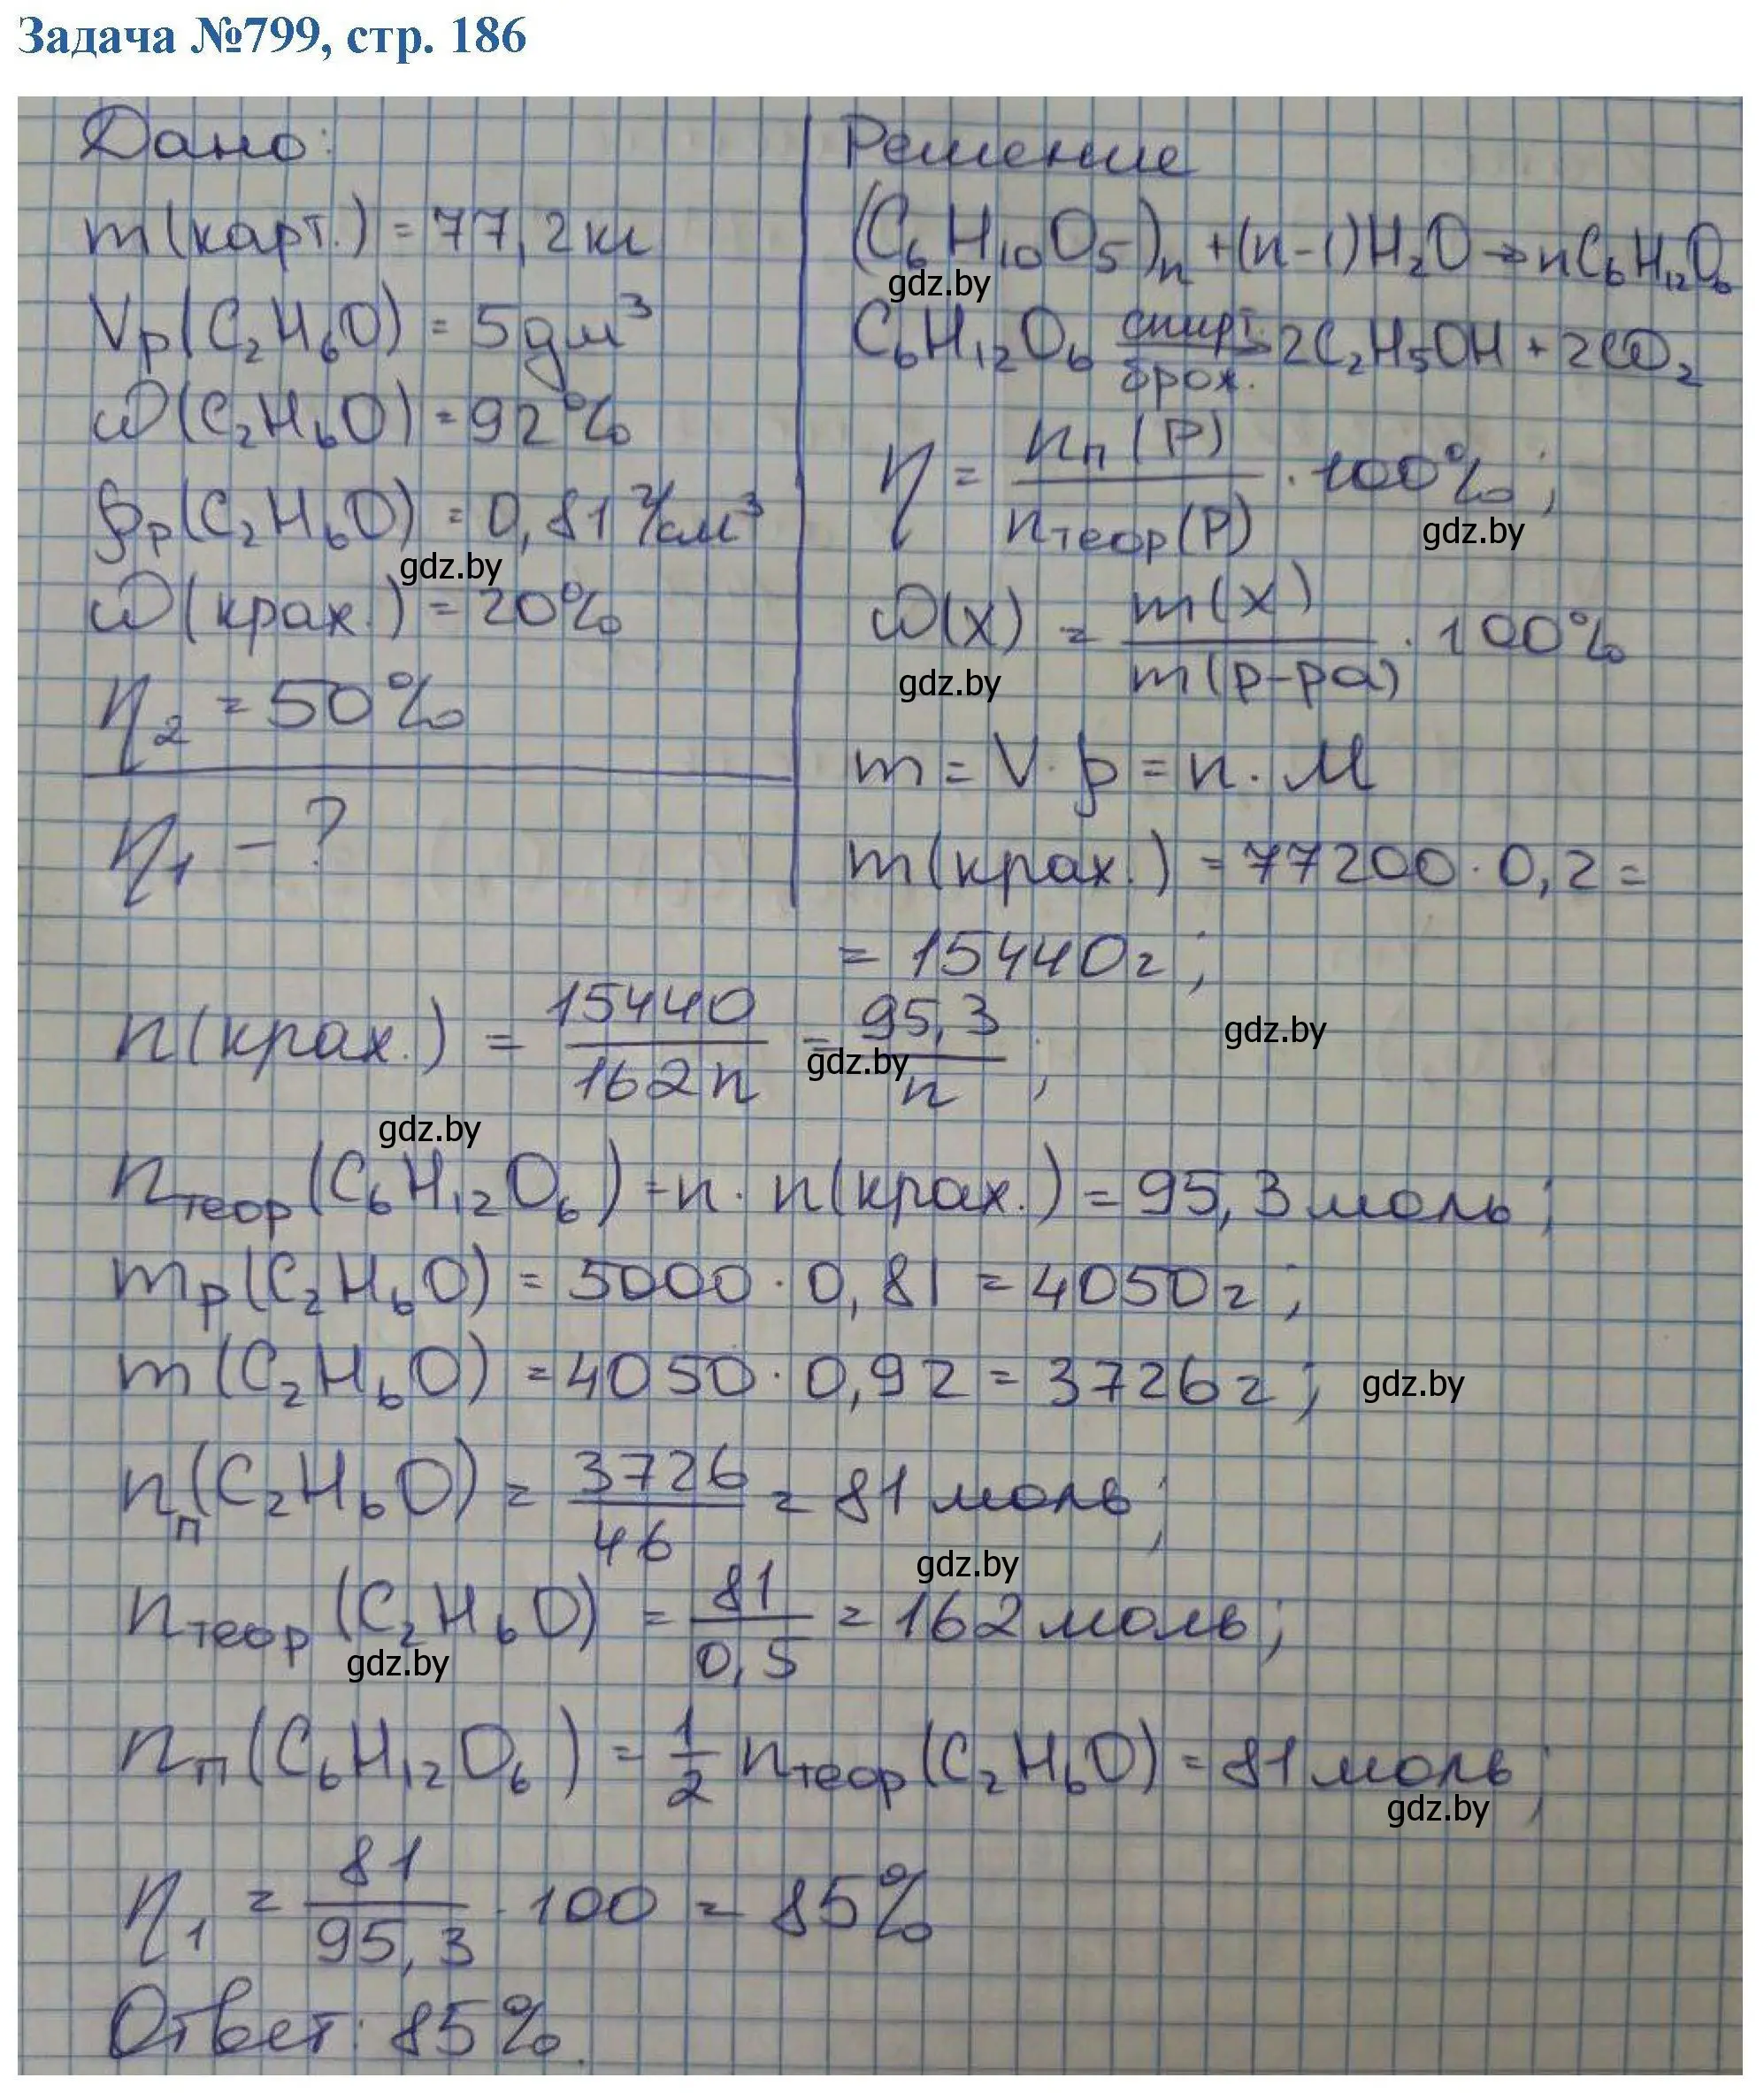 Задача №799, стр. 186
Дано:
m(карт.) = 77,2кг
Vр(C₂H₆O) = 5дм³
ω(C₂H₆O) = 92%
ρр(C₂H₆O) = 0,81 г/см³
gdz.by
ω(крах.) = 20%
η₂ = 50%
η₁ – ?
Решение
(C₆H₁₀O₅)n + (n-1)H₂O → nC₆H₁₂O₆
gdz.by
C₆H₁₂O₆ спирт. брож. → 2C₂H₅OH + 2CO₂
η = nп(P) / nтеор(P) · 100%;
gdz.by
ω(x) = m(x) / m(р-ра) · 100%
gdz.by
m = V · ρ = n · M
m(крах.) = 77200 · 0,2 =
= 15440г;
n(крах.) = 15440 / 162n = 95,3 / n;
gdz.by
gdz.by
gdz.by
nтеор(C₆H₁₂O₆) = n · n(крах.) = 95,3 моль;
mр(C₂H₆O) = 5000 · 0,81 = 4050г;
m(C₂H₆O) = 4050 · 0,92 = 3726г;
gdz.by
nп(C₂H₆O) = 3726 / 46 = 81 моль;
gdz.by
nтеор(C₂H₆O) = 81 / 0,5 = 162 моль;
gdz.by
nп(C₆H₁₂O₆) = 1/2 nтеор(C₂H₆O) = 81 моль;
gdz.by
η₁ = 81 / 95,3 · 100 = 85%
Ответ: 85%.